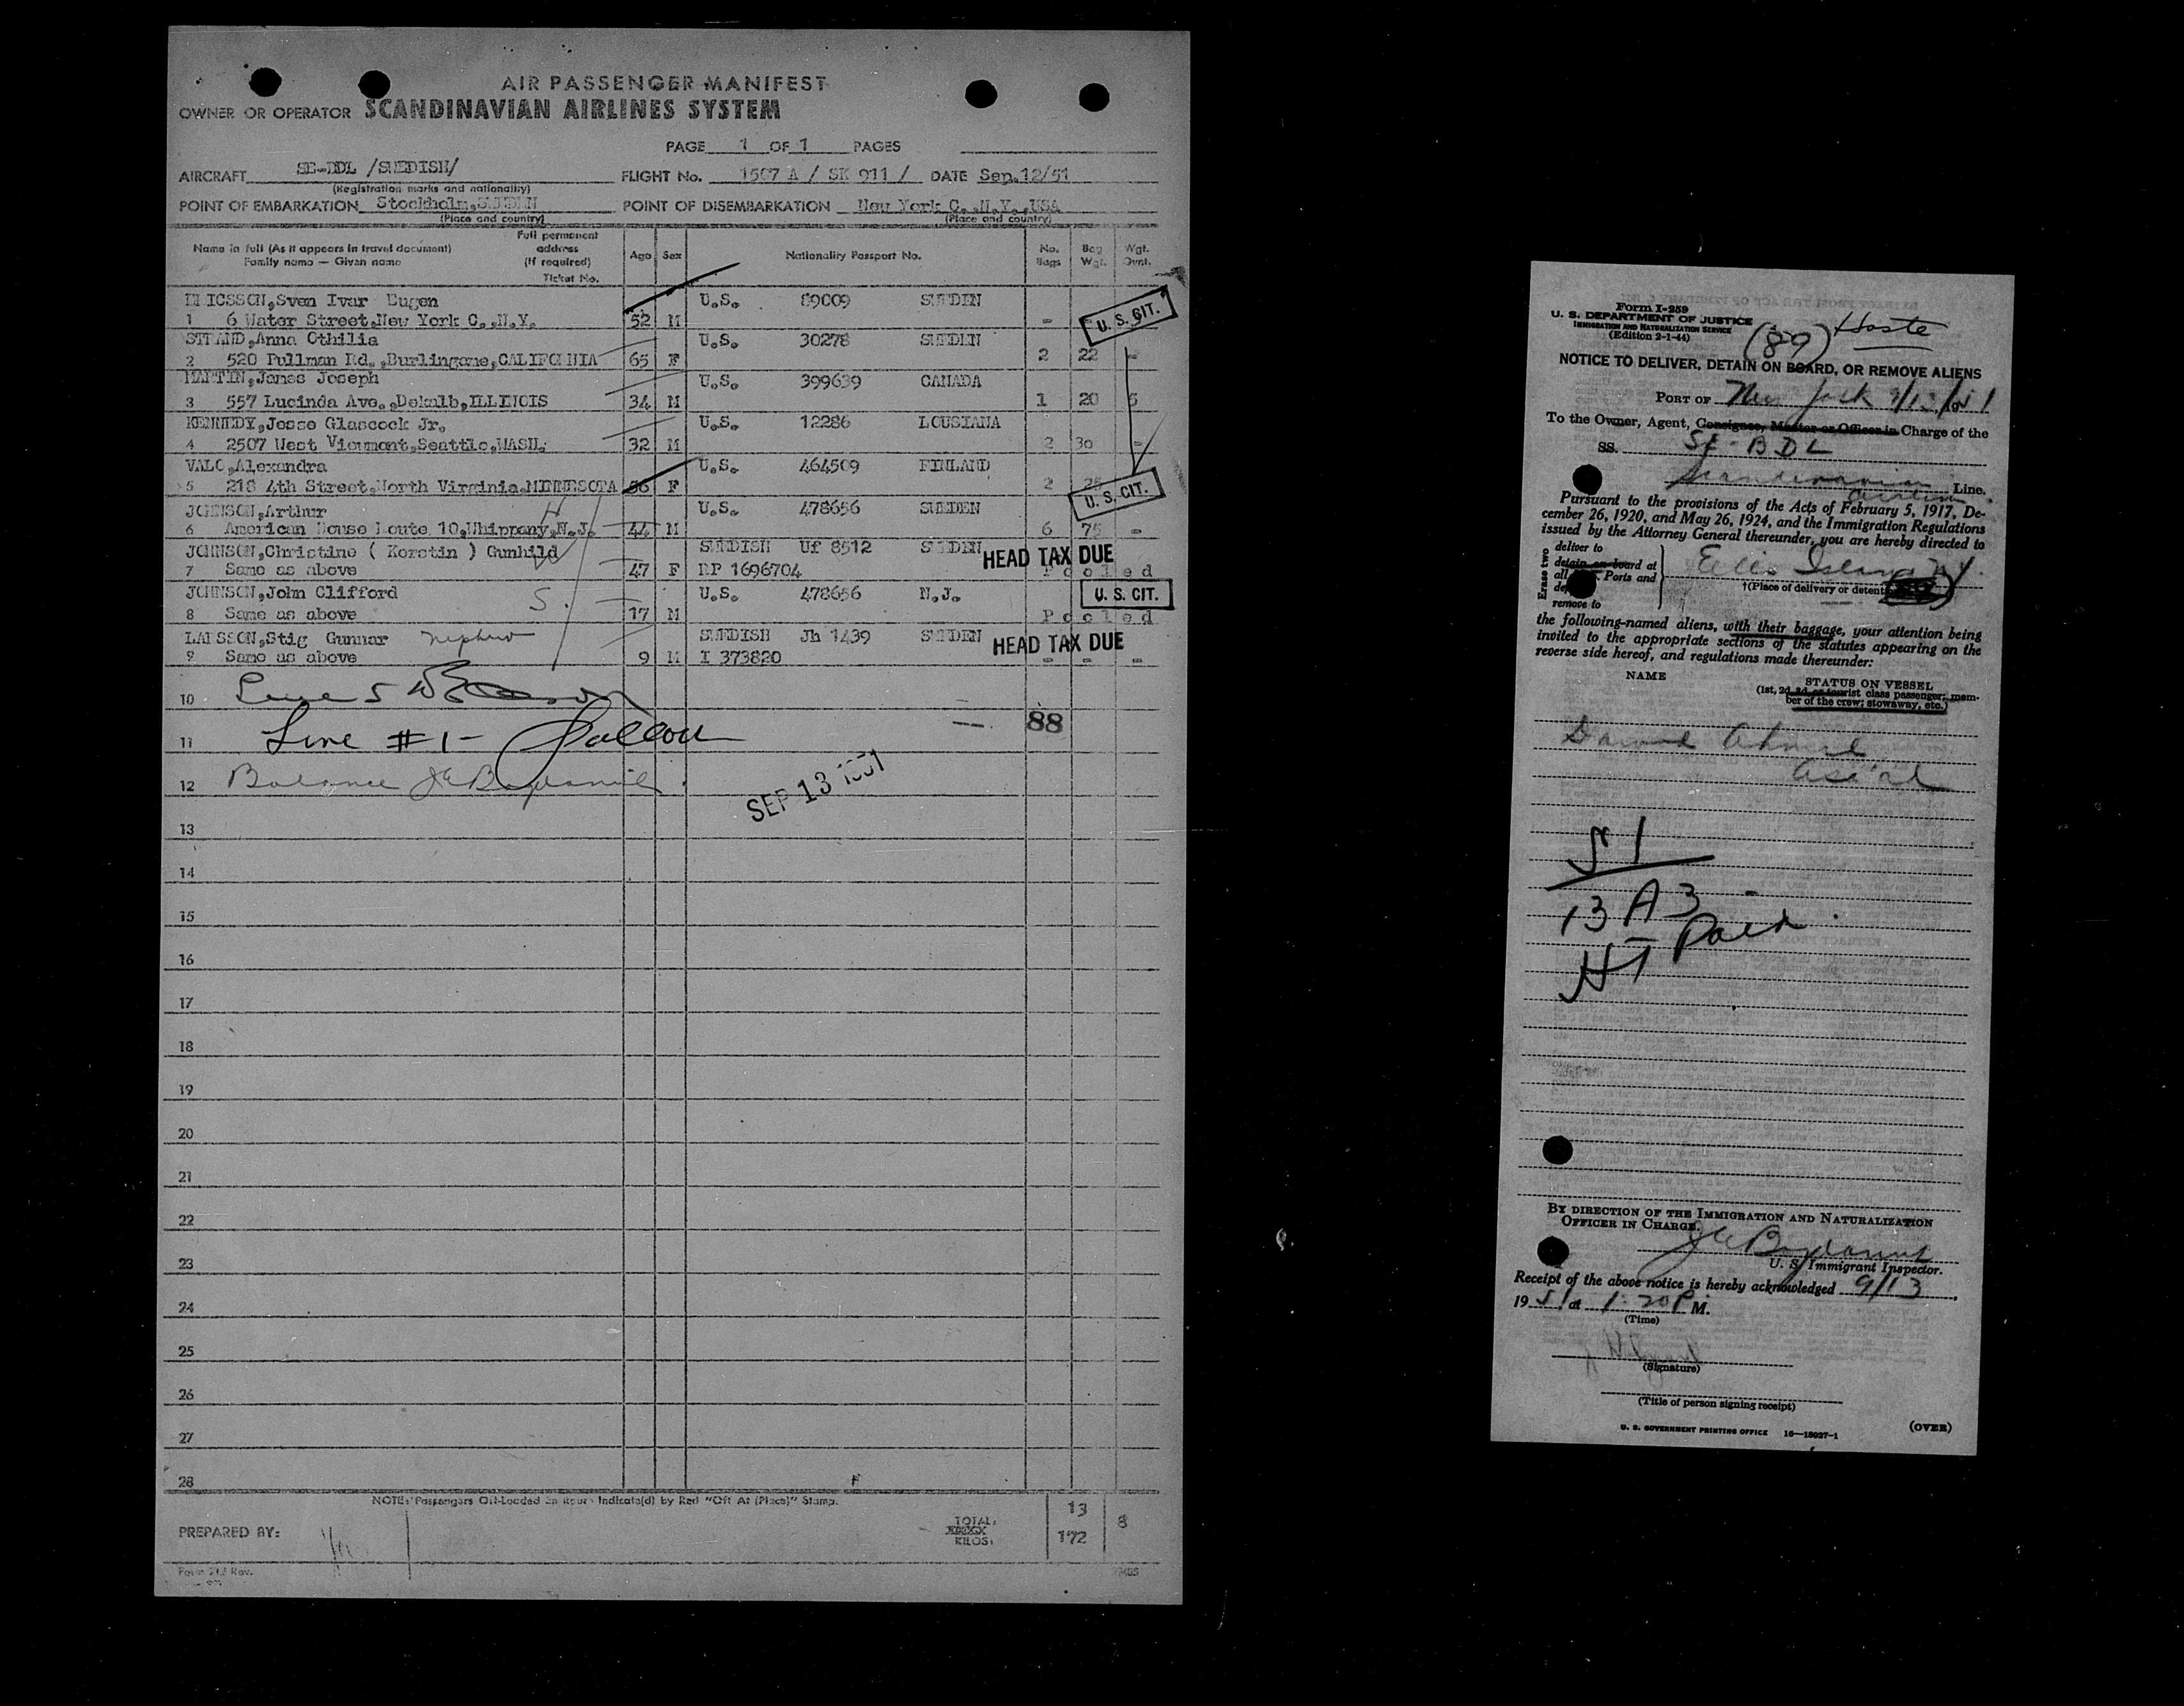 AIR PASSENGER MANIFEST
OWNER OR OPERATOR SCANDINAVIAN AIRLINES SYSTEM
PAGE 1 OF 1 PAGES
AIRCRAFT SE-BDL /SWEDISH/ FLIGHT No. 1507 A / SK 911 / DATE Sep.12/51
(Registration marks and nationality)
POINT OF EMBARKATION Stockholm,SWEDEN POINT OF DISEMBARKATION New York C.,N.Y.,USA
(Place and country) (Place and country)
Name in full (As it appears in travel document) Full permanent address (If required) Age Sex Nationality Passport No. No. Bags Bag Wgt. Wgt. Ovnt.
Family name — Given name
Ticket No.
ERICSSON,Sven Ivar Eugen U.S. 89009 SWEDEN
1 6 Water Street,New York C.,N.Y. 52 M - U. S. CIT.
STRAND,Anna Othilia U.S. 30278 SWEDEN
2 520 Pullman Rd.,Burlingame,CALIFORNIA 65 F 2 22 -
MARTIN,James Joseph U.S. 399639 CANADA
3 557 Lucinda Ave.,Dekalb,ILLINOIS 34 M 1 20 5
KENNEDY,Jesse Glascock Jr. U.S. 12286 LOUSIANA
4 2507 West Viewmont,Seattle,WASH. 32 M 2 30 -
VALO,Alexandra U.S. 464509 FINLAND
5 218 4th Street,North Virginia,MINNESOTA 56 F 2 25 U. S. CIT.
JOHNSON,Arthur U.S. 478656 SWEDEN
6 American House Route 10,Whippany,N.J. 44 M 6 75 -
JOHNSON,Christine ( Kerstin ) Gunhild SWEDISH Uf 8512 SWEDEN HEAD TAX DUE
7 Same as above 47 F RP 1696704 Pooled
JOHNSON,John Clifford S. U.S. 478656 N.J. U. S. CIT.
8 Same as above 17 M Pooled
LARSSON,Stig Gunnar nephew SWEDISH Jh 1439 SWEDEN HEAD TAX DUE
9 Same as above 9 M I 373820 - - -
10 Line 5
11 Line #1- — 88
12 Balance
SEP 13 1951
13
14
15
16
17
18
19
20
21
22
23
24
25
26
27
28
NOTE: Passengers Off-Loaded En Route Indicate(d) by Red "Off At (Place)" Stamp.
PREPARED BY: TOTAL: 13 8
KILOS: 172
Form 212 Rev.
Form I-259
U. S. DEPARTMENT OF JUSTICE
IMMIGRATION AND NATURALIZATION SERVICE
(Edition 2-1-44)
(89)
NOTICE TO DELIVER, DETAIN ON BOARD, OR REMOVE ALIENS
PORT OF New York 9/13/1951
To the Owner, Agent, Consignee, Master or Officer in Charge of the
SS. SE-BDL
Scandinavian Airline Line.
Pursuant to the provisions of the Acts of February 5, 1917, De-
cember 26, 1920, and May 26, 1924, and the Immigration Regulations
issued by the Attorney General thereunder, you are hereby directed to
Erase two
deliver to
detain on board at
all Ports and
remove to
Ellis Island N.Y.
†(Place of delivery or detention)
the following-named aliens, with their baggage, your attention being
invited to the appropriate sections of the statutes appearing on the
reverse side hereof, and regulations made thereunder:
NAME STATUS ON VESSEL
(1st, 2d, 3d, or tourist class passenger; mem-
ber of the crew; stowaway, etc.)
51
13 A 3
HT Paid
BY DIRECTION OF THE IMMIGRATION AND NATURALIZATION
OFFICER IN CHARGE.
U. S. Immigrant Inspector.
Receipt of the above notice is hereby acknowledged 9/13,
1951 at 1:20 P M.
(Time)
(Signature)
(Title of person signing receipt)
U. S. GOVERNMENT PRINTING OFFICE 16—18927-1 (OVER)